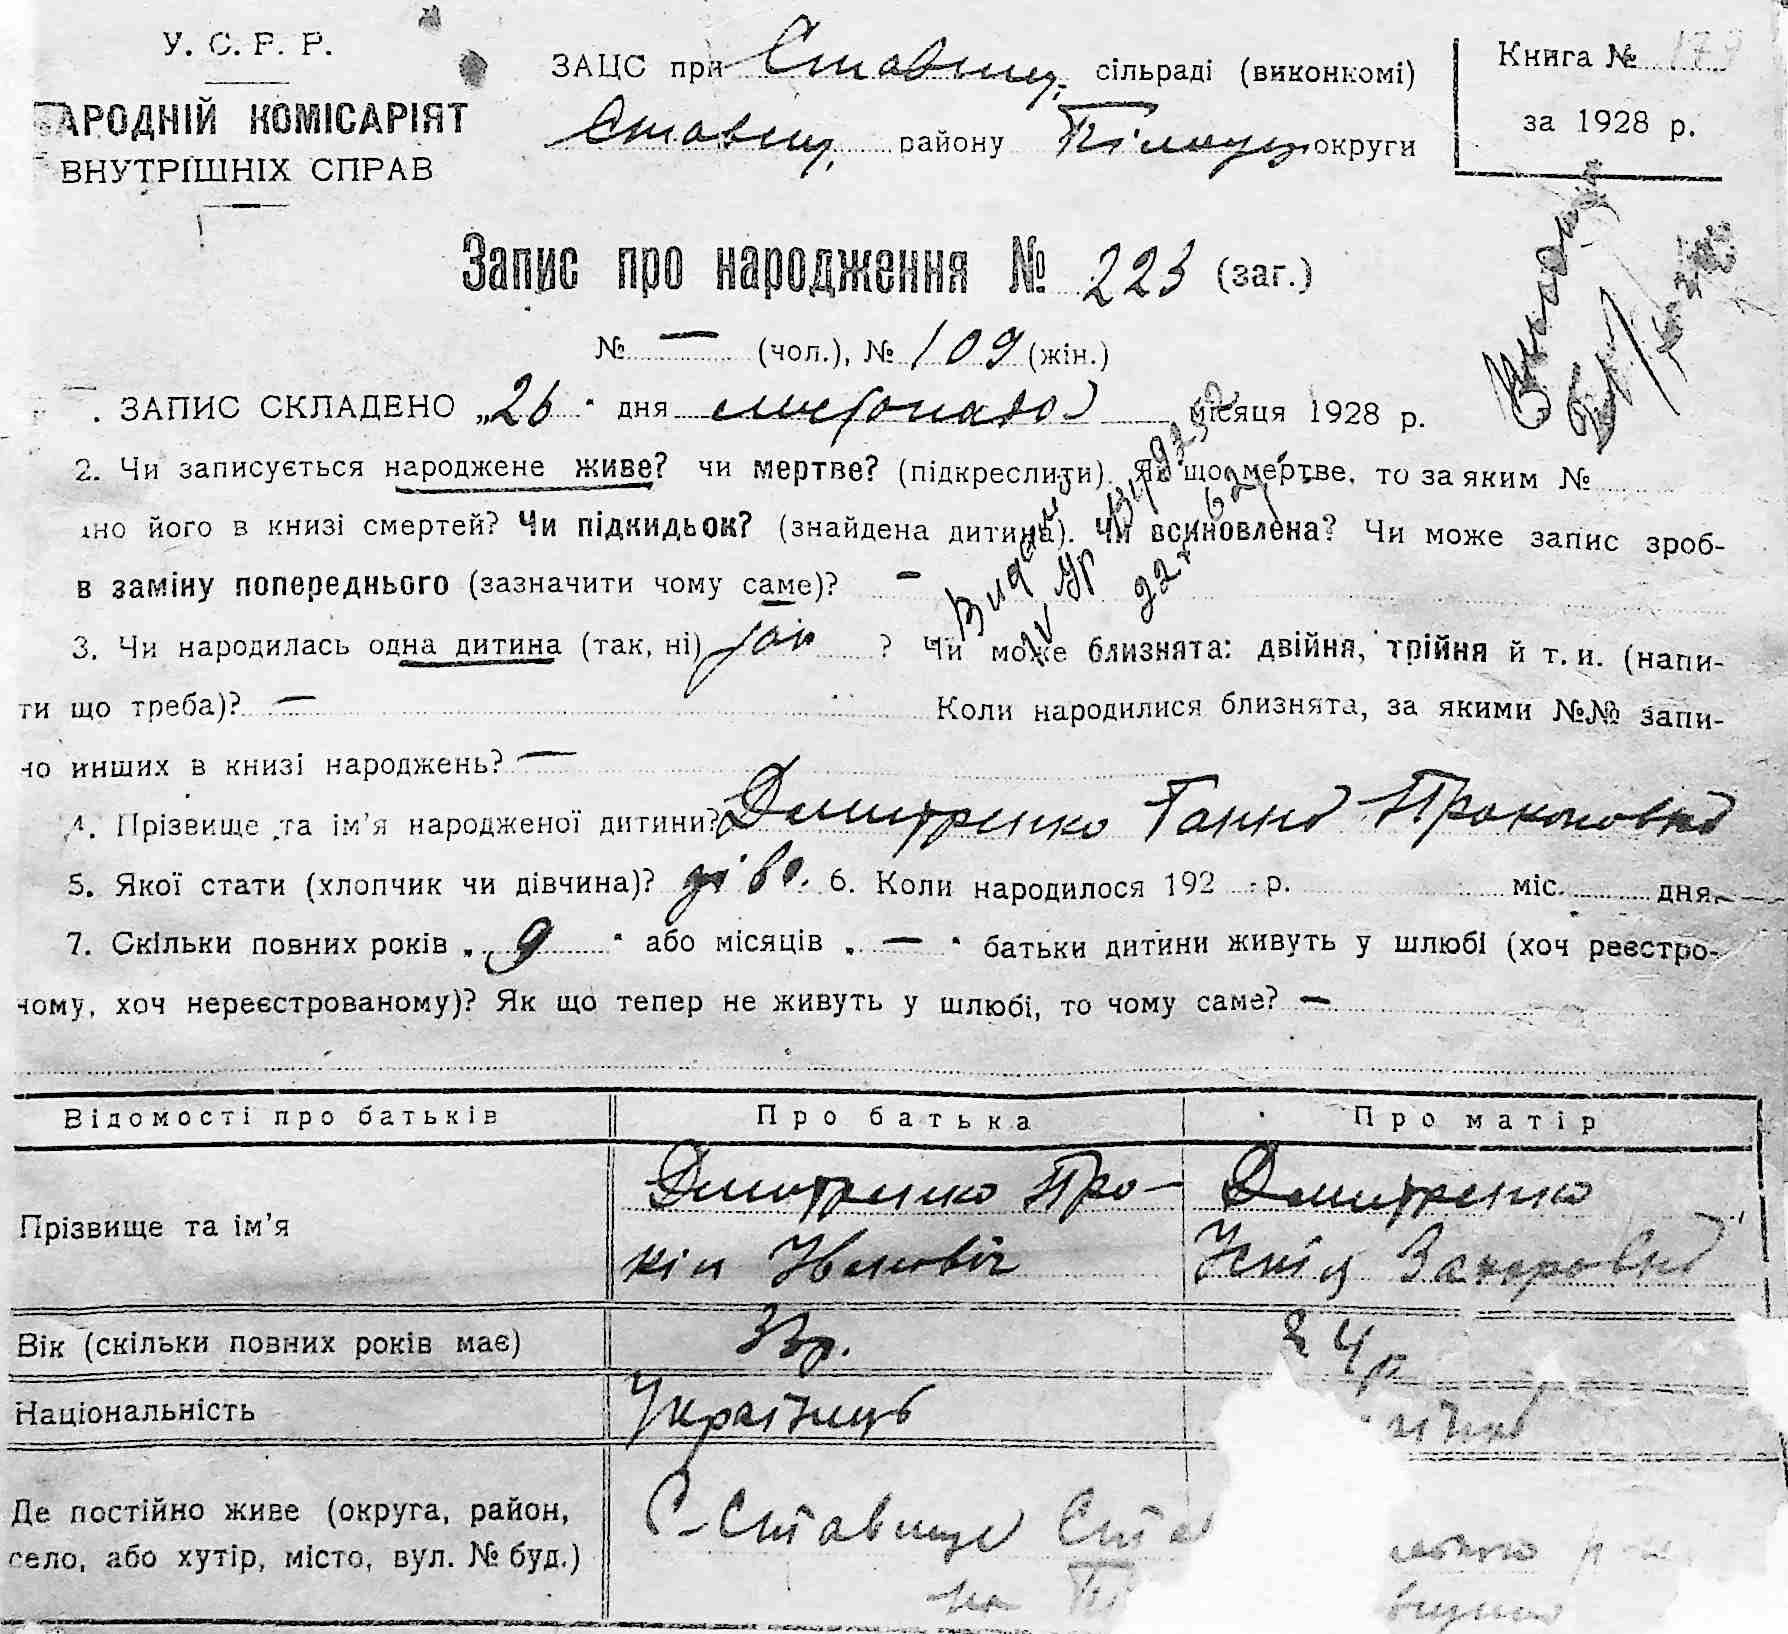 У. С. Р. Р.
АРОДНІЙ КОМІСАРІЯТ
ВНУТРІШНІХ СПРАВ
ЗАЦС при Ставищ. сільраді (виконкомі)
Ставищ. району Білоцер округи
Книга №
за 1928 р.
Запис про народження № 223 (заг.)
№ — (чол.), № 109 (жін.)
. ЗАПИС СКЛАДЕНО „26" дня листопада місяця 1928 р.
2. Чи записується народжене живе? чи мертве? (підкреслити). Як що мертве, то за яким №
но його в книзі смертей? Чи підкидьок? (знайдена дитина). Чи всиновлена? Чи може запис зроб-
в заміну попереднього (зазначити чому саме)? —
3. Чи народилась одна дитина (так, ні) так ? Чи може близнята: двійня, трійня й т. и. (напи-
ти що треба)? — Коли народилися близнята, за якими №№ запи-
но инших в книзі народжень? —
4. Прізвище та ім'я народженої дитини? Дмитренко Ганна Прокоповна
5. Якої стати (хлопчик чи дівчина)? дівч. 6. Коли народилося 192 р. міс. дня —
7. Скільки повних років „9" або місяців „—" батьки дитини живуть у шлюбі (хоч реєстро-
ному, хоч нереєстрованому)? Як що тепер не живуть у шлюбі, то чому саме? —
Відомості про батьків Про батька Про матір
Прізвище та ім'я
Дмитренко Про-
кіп Іванович
Дмитренко
Захаровна
Вік (скільки повних років має) 33р. 24р
Національність Українець
Де постійно живе (округа, район,
село, або хутір, місто, вул. № буд.)
С-Ставище Ста